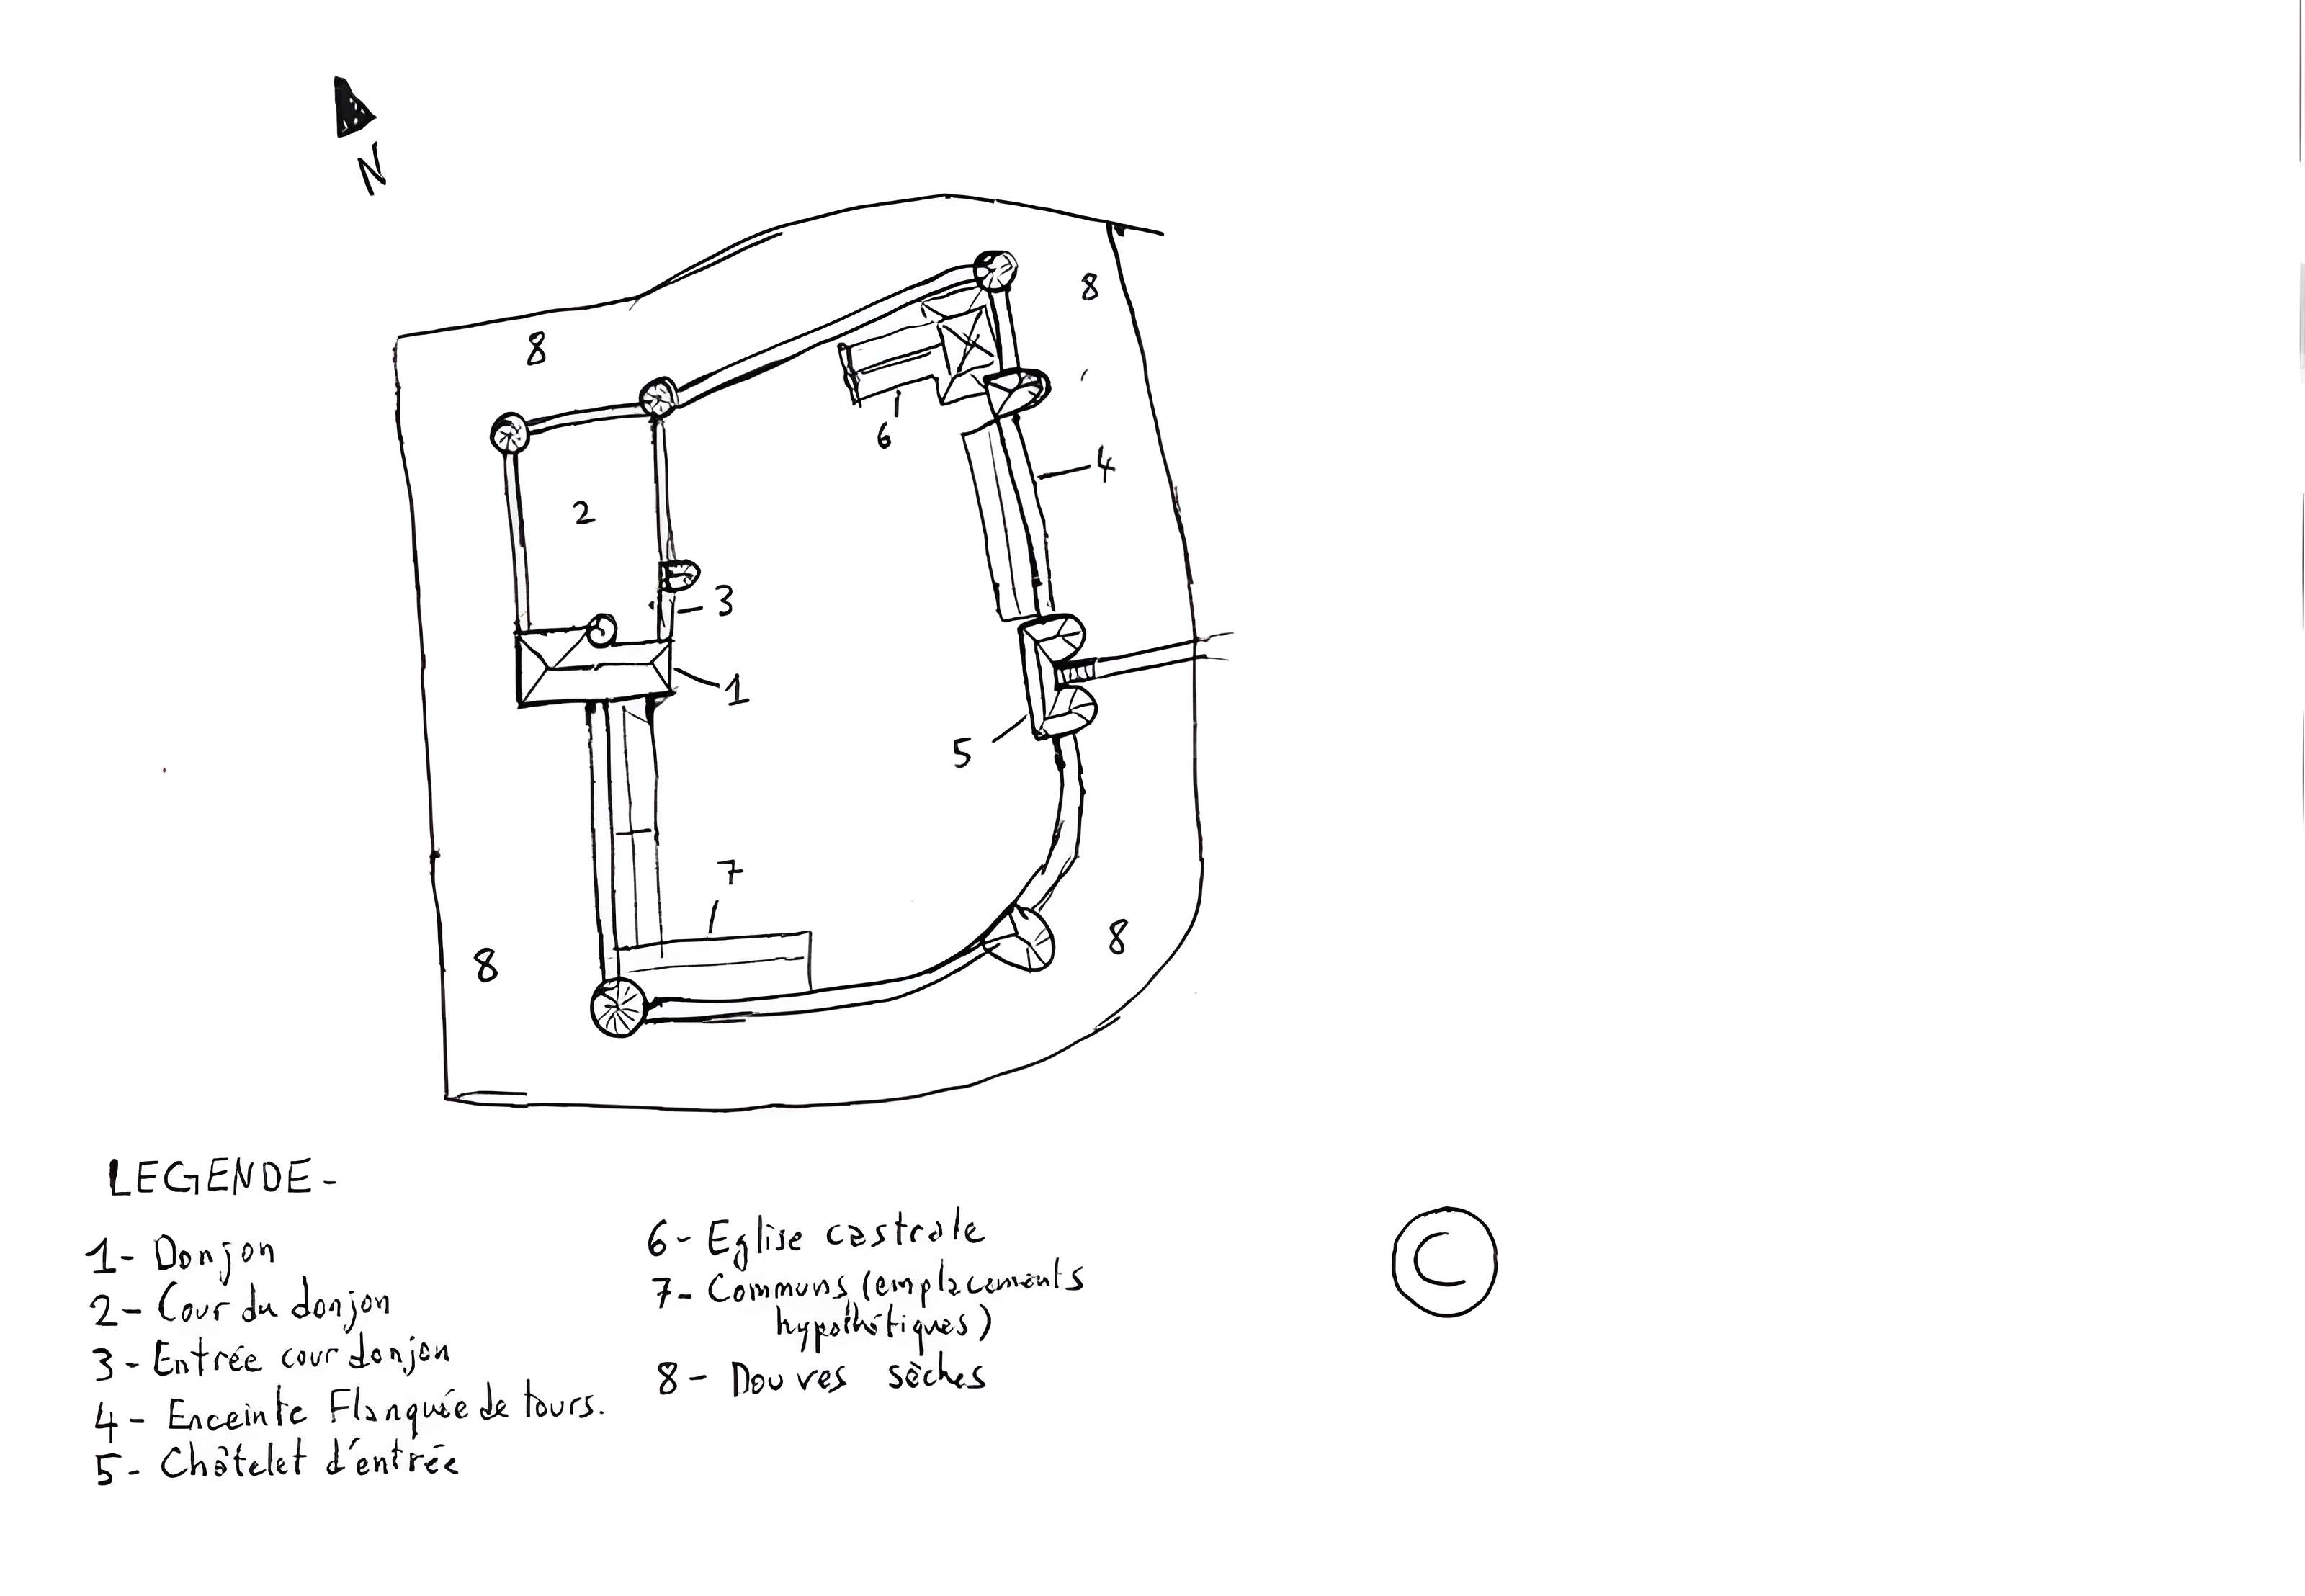 N
8
8
6
4
2
3
1
5
7
8
8
LEGENDE-
1- Donjon
2- Cour du donjon
3- Entrée cour donjon
4- Enceinte Flanquée de tours.
5- Châtelet d'entrée
6- Eglise castrale
7- Communs (emplacements
hypothétiques)
8- Douves sèches
C